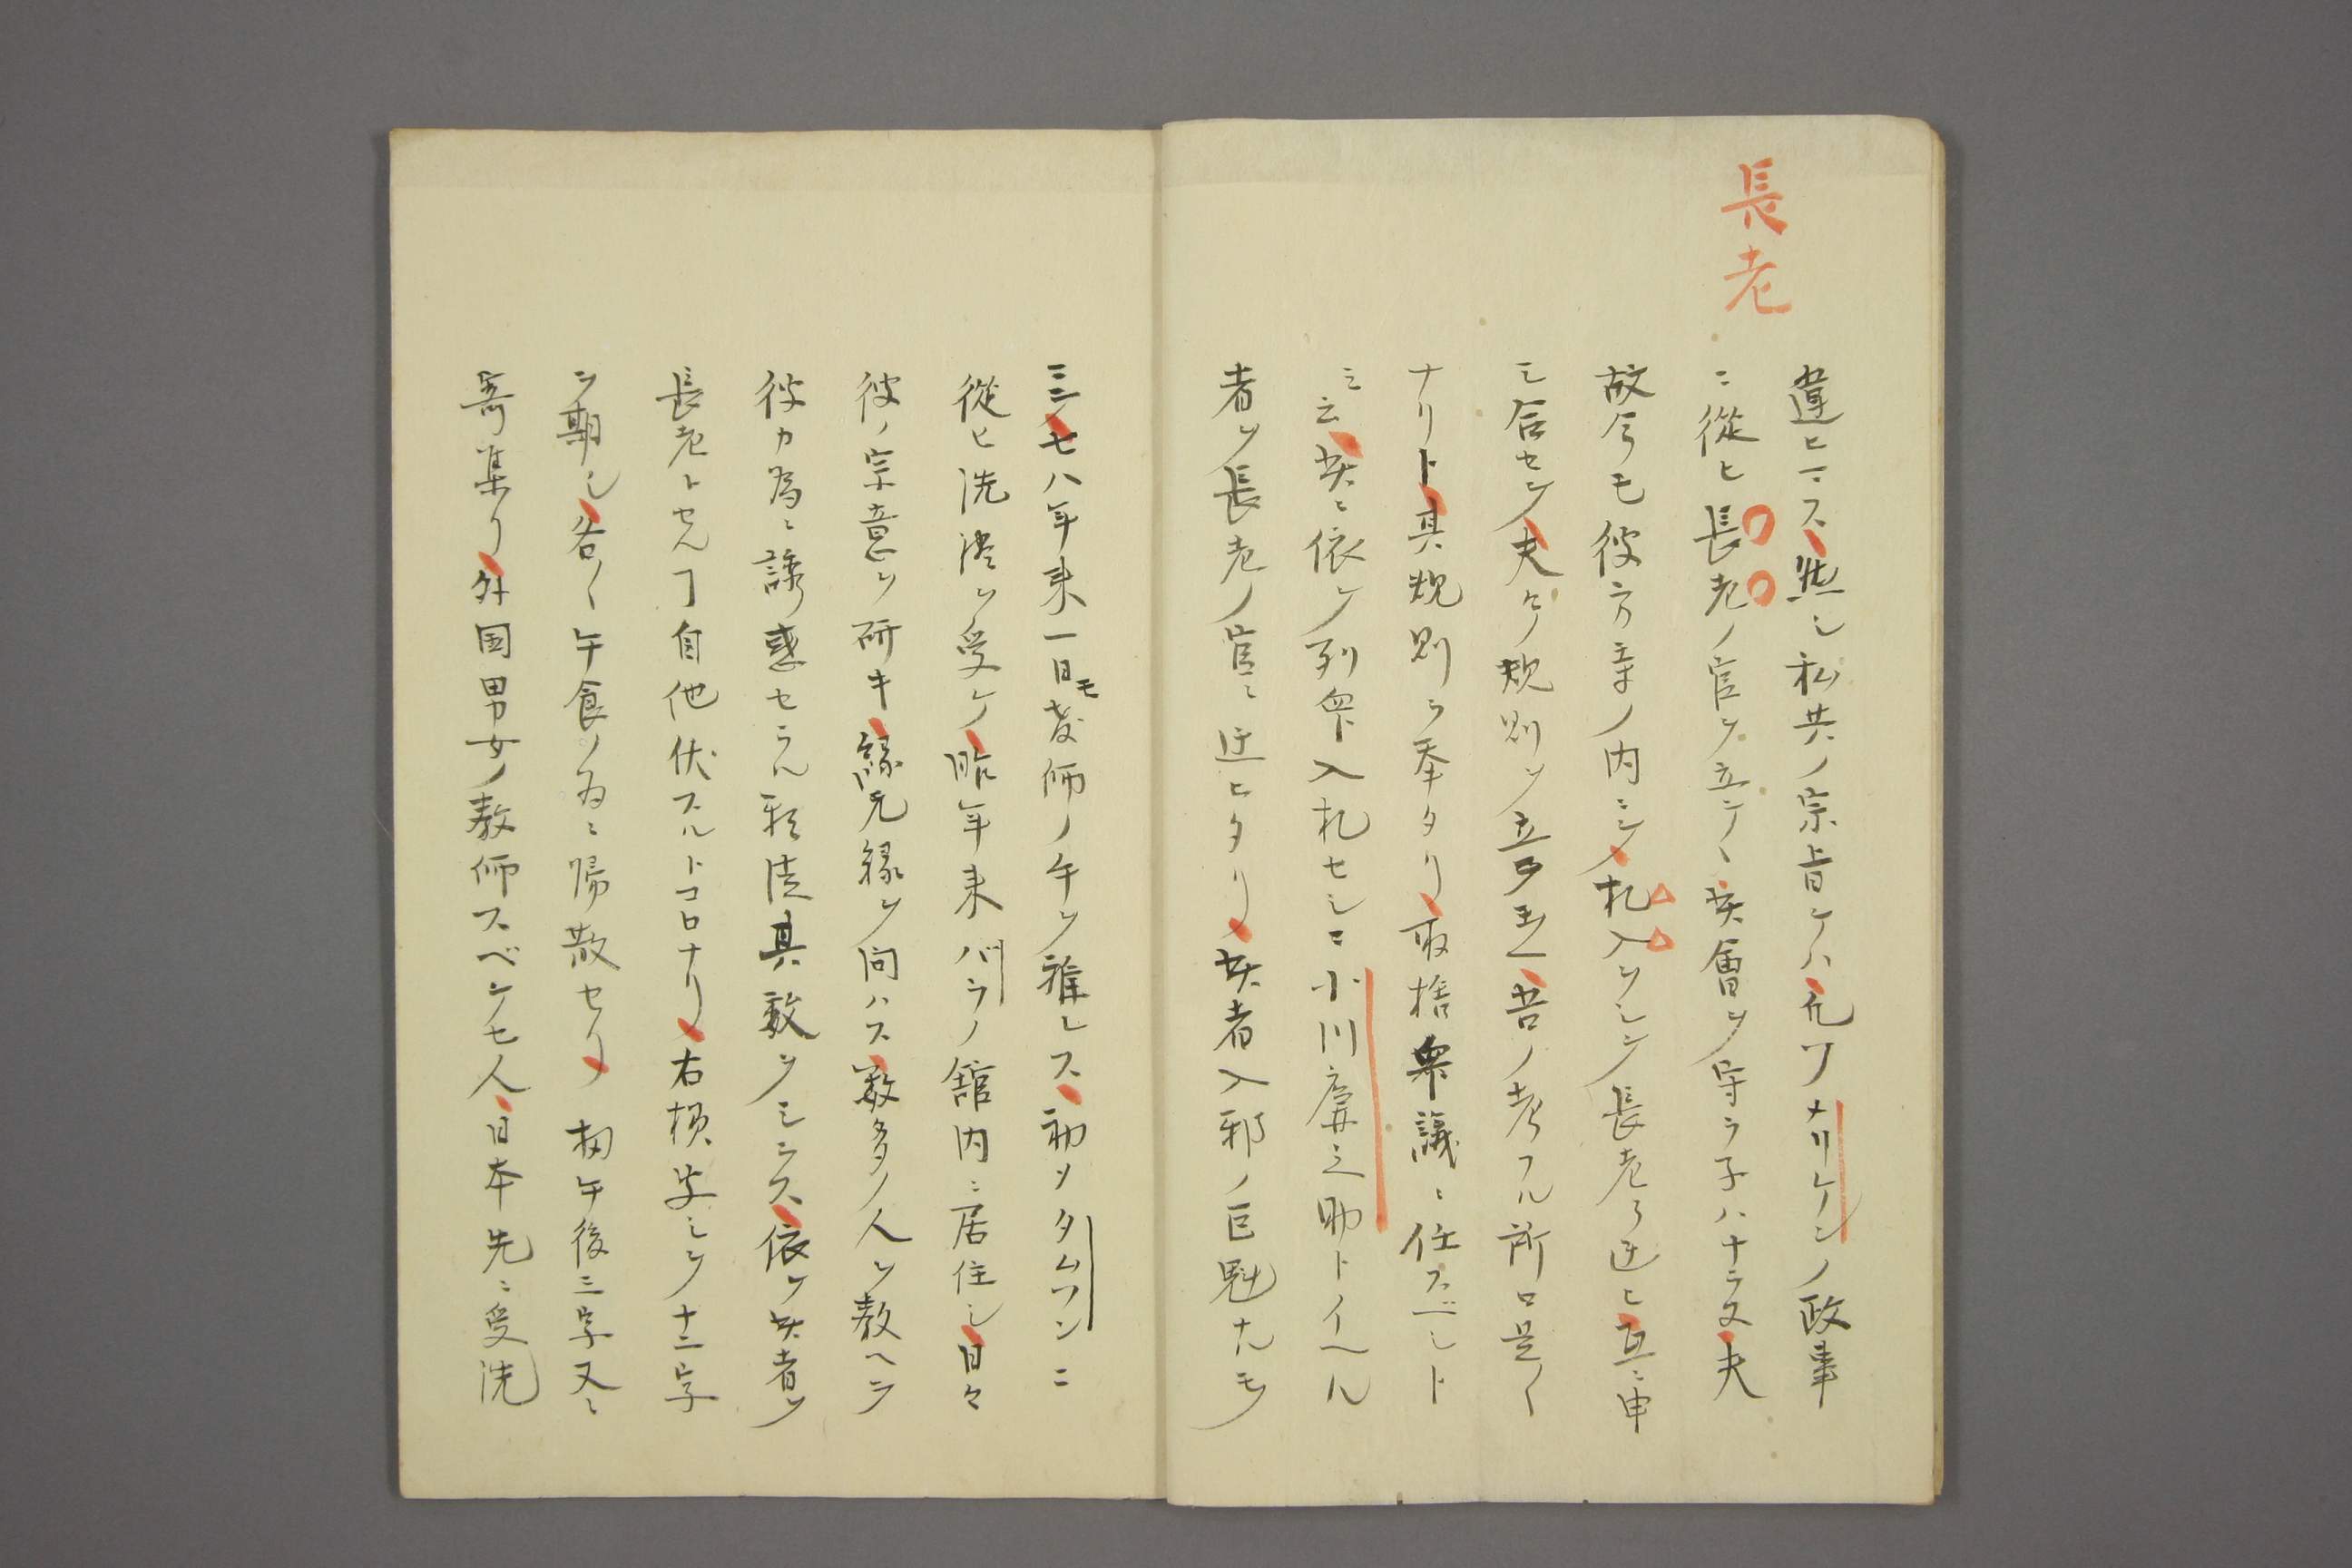 長老
違ヒマス然シ私共ノ宗旨ンケハ凡ワメリケンノ政事
ニ從ヒ長老ノ官ヲ立テ丶其會ヲ守ラ子ハナラヌ夫
故今モ彼方章ノ内ニシ札入ヲシテ長老ヲ迁ヒ互ニ申
シ合セシ夫々ノ規則ヲ立タ玉ヘ吾ノ考フル所ロ是く
ナリト其規則ヲ奉タリ取捨衆議ニ任スベシト
ミ云其ニ依テ列衆入札セシニ小川廉之助トイヘル
者ヲ長老ノ官ニ迁ヒタリ其者入邪ノ巨魁ナルモ
ミシ七八年来一日モ教師ノ午ヲ離レス初メタムソンニ
從ヒ洗禮ヲ受ケ昨年来バラノ舘内ニ居住シ日々
彼ノ宗意ヲ研キ縁无縁ヲ問ハス数多ノ人ヲ教ヘテ
彼カ為ニ誘惑セラル邪徒其数ヲシラス依テ其者ヲ
長老トセルヿ自他伏スルトコロナリ右損安シテ十二字
ヲ期シ各く午食ノ為ニ帰散セリ 扨午後三字又ニ
寄集リ外国男女ノ教師スベテ七人日本先ニ受洗